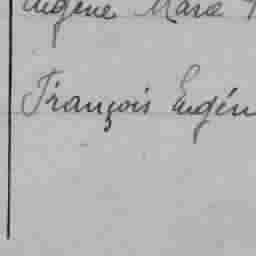 Eugène Marie
François Eugén